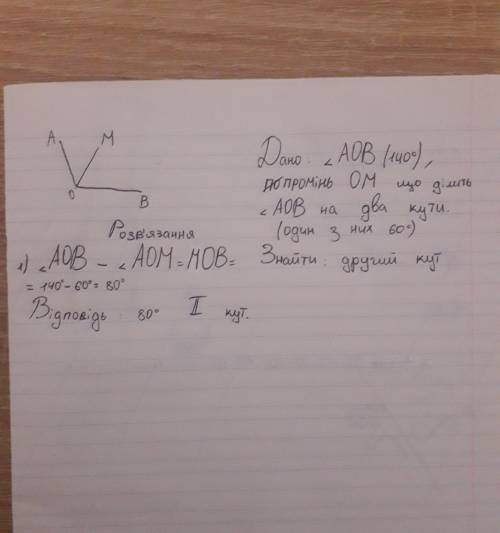 A M
O
B
Дано: ∠AOB (140°),
промінь OM що ділить
∠AOB на два кути.
(один з них 60°)
Знайти: другий кут
Розв'язання
1) ∠AOB - ∠AOM = MOB =
= 140° - 60° = 80°
Відповідь: 80° II кут.